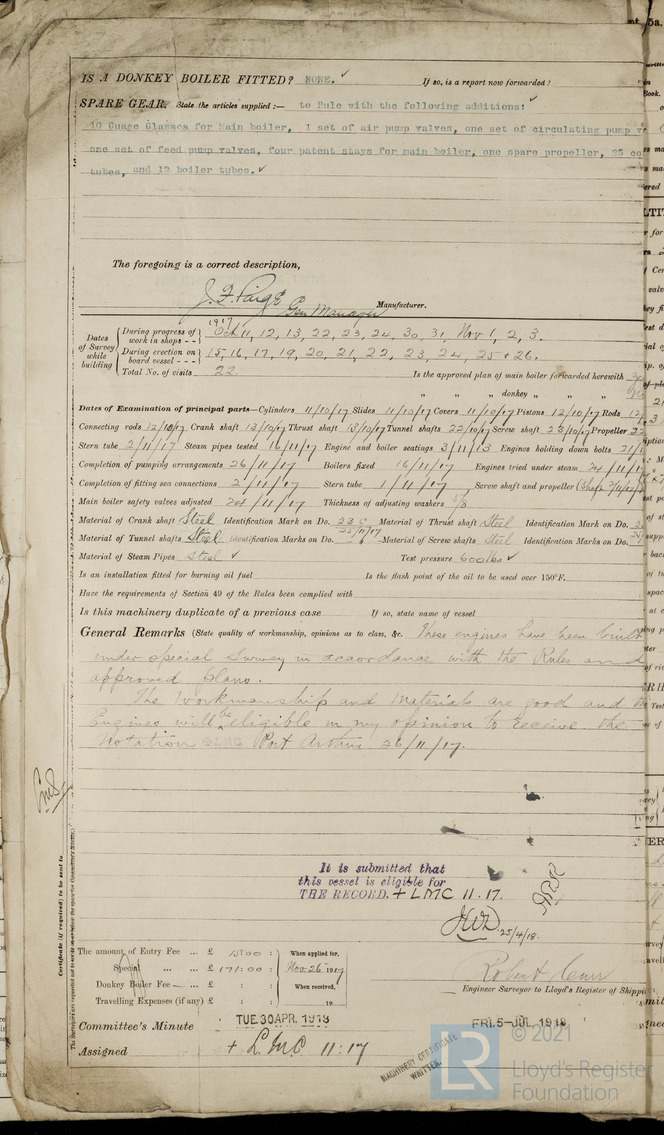 IS A DONKEY BOILER FITTED? NONE. ✓ If so, is a report now forwarded?
SPARE GEAR. State the articles supplied:— to Rule with the following additions: ✓
10 Guage Glasses for Main boiler, 1 set of air pump valves, one set of circulating pump v
one set of feed pump valves, four patent stays for main boiler, one spare propeller, 25 co
tubes, and 12 boiler tubes. ✓
The foregoing is a correct description,
Gen Manager Manufacturer.
1917
Dates of Survey while building
During progress of work in shops - - Oct 11, 12, 13, 22, 23, 24, 30, 31, Nov 1, 2, 3.
During erection on board vessel - - - 15, 16, 17, 19, 20, 21, 22, 23, 24, 25 & 26.
Total No. of visits 22 Is the approved plan of main boiler forwarded herewith
" " " donkey " "
Dates of Examination of principal parts—Cylinders 11/10/17 Slides 11/10/17 Covers 11/10/17 Pistons 12/10/17 Rods
Connecting rods 12/10/17 Crank shaft 13/10/17 Thrust shaft 13/10/17 Tunnel shafts 22/10/17 Screw shaft 23/10/17 Propeller
Stern tube 2/11/17 Steam pipes tested 16/11/17 Engine and boiler seatings 3/11/13 Engines holding down bolts
Completion of pumping arrangements 26/11/17 Boilers fixed 16/11/17 Engines tried under steam 24/11/17
Completion of fitting sea connections 2/11/17 Stern tube 1/11/17 Screw shaft and propeller
Main boiler safety valves adjusted 24/11/17 Thickness of adjusting washers
Material of Crank shaft Steel Identification Mark on Do. Material of Thrust shaft Steel Identification Mark on Do.
Material of Tunnel shafts Steel Identification Marks on Do. Material of Screw shafts Steel Identification Marks on Do.
Material of Steam Pipes Steel ✓ Test pressure 600 lbs ✓
Is an installation fitted for burning oil fuel Is the flash point of the oil to be used over 150°F.
Have the requirements of Section 49 of the Rules been complied with
Is this machinery duplicate of a previous case If so, state name of vessel
General Remarks (State quality of workmanship, opinions as to class, &c. These engines have been built
under special survey in accordance with the Rules and
approved plans.
The Workmanship and Materials are good and th
Engines will be eligible in my opinion to receive the
Notation LMC Port Arthur 26/11/17.
It is submitted that
this vessel is eligible for
THE RECORD. + LMC 11.17.
25/4/18.
Certificate (if required) to be sent to
The amount of Entry Fee ... £ 15:00 : When applied for,
Special ... ... £ 171:00 : Nov 26 1917
Donkey Boiler Fee ... £ : : When received,
Travelling Expenses (if any) £ : : 19
Engineer Surveyor to Lloyd's Register of Shippi
Committee's Minute TUE. 30 APR. 1918 FRI. 5-JUL. 1918
Assigned + L.M.C 11:17
MACHINERY CERTIFICATE
WRITTEN.
LR
© 2021
Lloyd's Register
Foundation